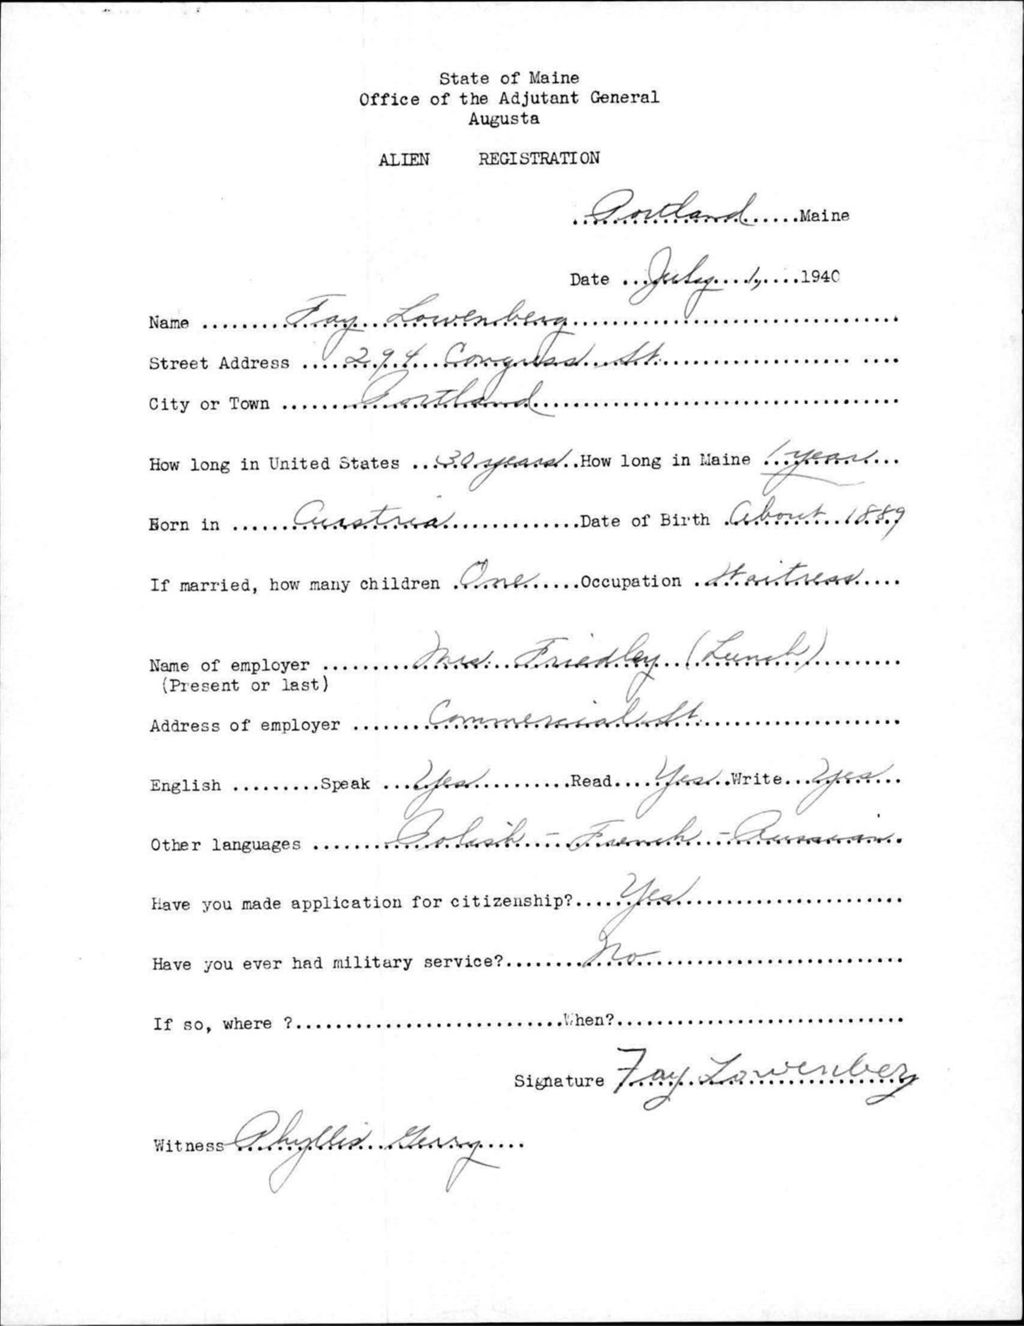 State of Maine
Office of the Adjutant General
Augusta
ALIEN REGISTRATION
Portland Maine
Date July 1, 1940
Name Fay Lowenberg
Street Address 294 Congress St.
City or Town Portland
How long in United States 30 years How long in Maine 1 year
Born in Austria Date of Birth About 1889
If married, how many children One Occupation Waitress
Name of employer Mrs. Friedley (Lunch)
(Present or last)
Address of employer Commercial St.
English Speak Yes Read Yes Write Yes
Other languages Polish - French - Russian
Have you made application for citizenship? Yes
Have you ever had military service? No
If so, where ? When?
Signature Fay Lowenberg
Witness Phyllis Gerry